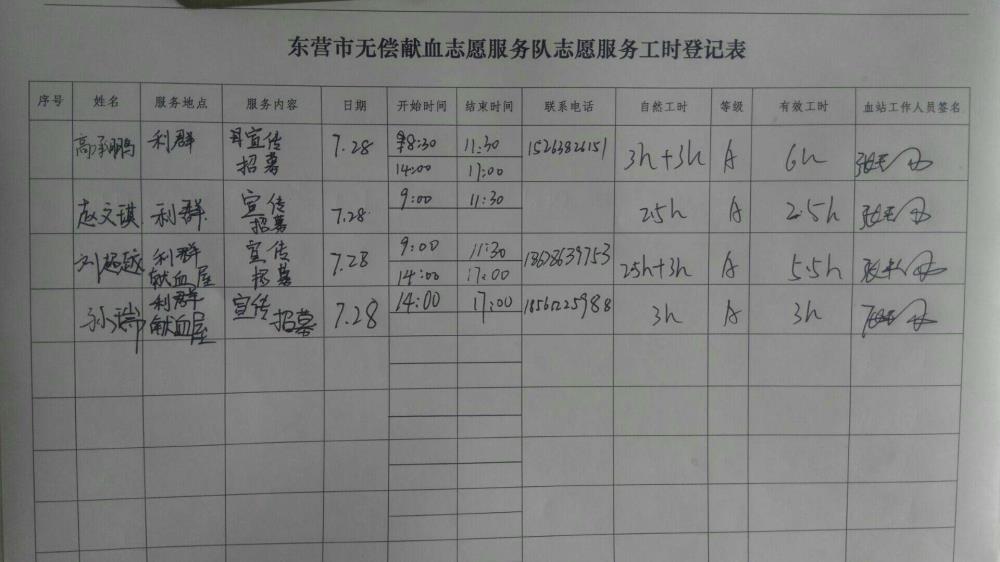 东营市无偿献血志愿服务队志愿服务工时登记表
序号 姓名 服务地点 服务内容 日期 开始时间 结束时间 联系电话 自然工时 等级 有效工时 血站工作人员签名
高承鹏 利群 宣传 7.28 8:30 11:30 15263826151 3h+3h A 6h
招募 14:00 17:00
赵文琪 利群 宣传 7.28 9:00 11:30 2.5h A 2.5h
招募
刘超越 利群 宣传 7.28 9:00 11:30 25h+3h A 5.5h
献血屋 招募 14:00 17:00
孙瑞 利群 宣传 招募 7.28 14:00 17:00 18561225988 3h A 3h
献血屋